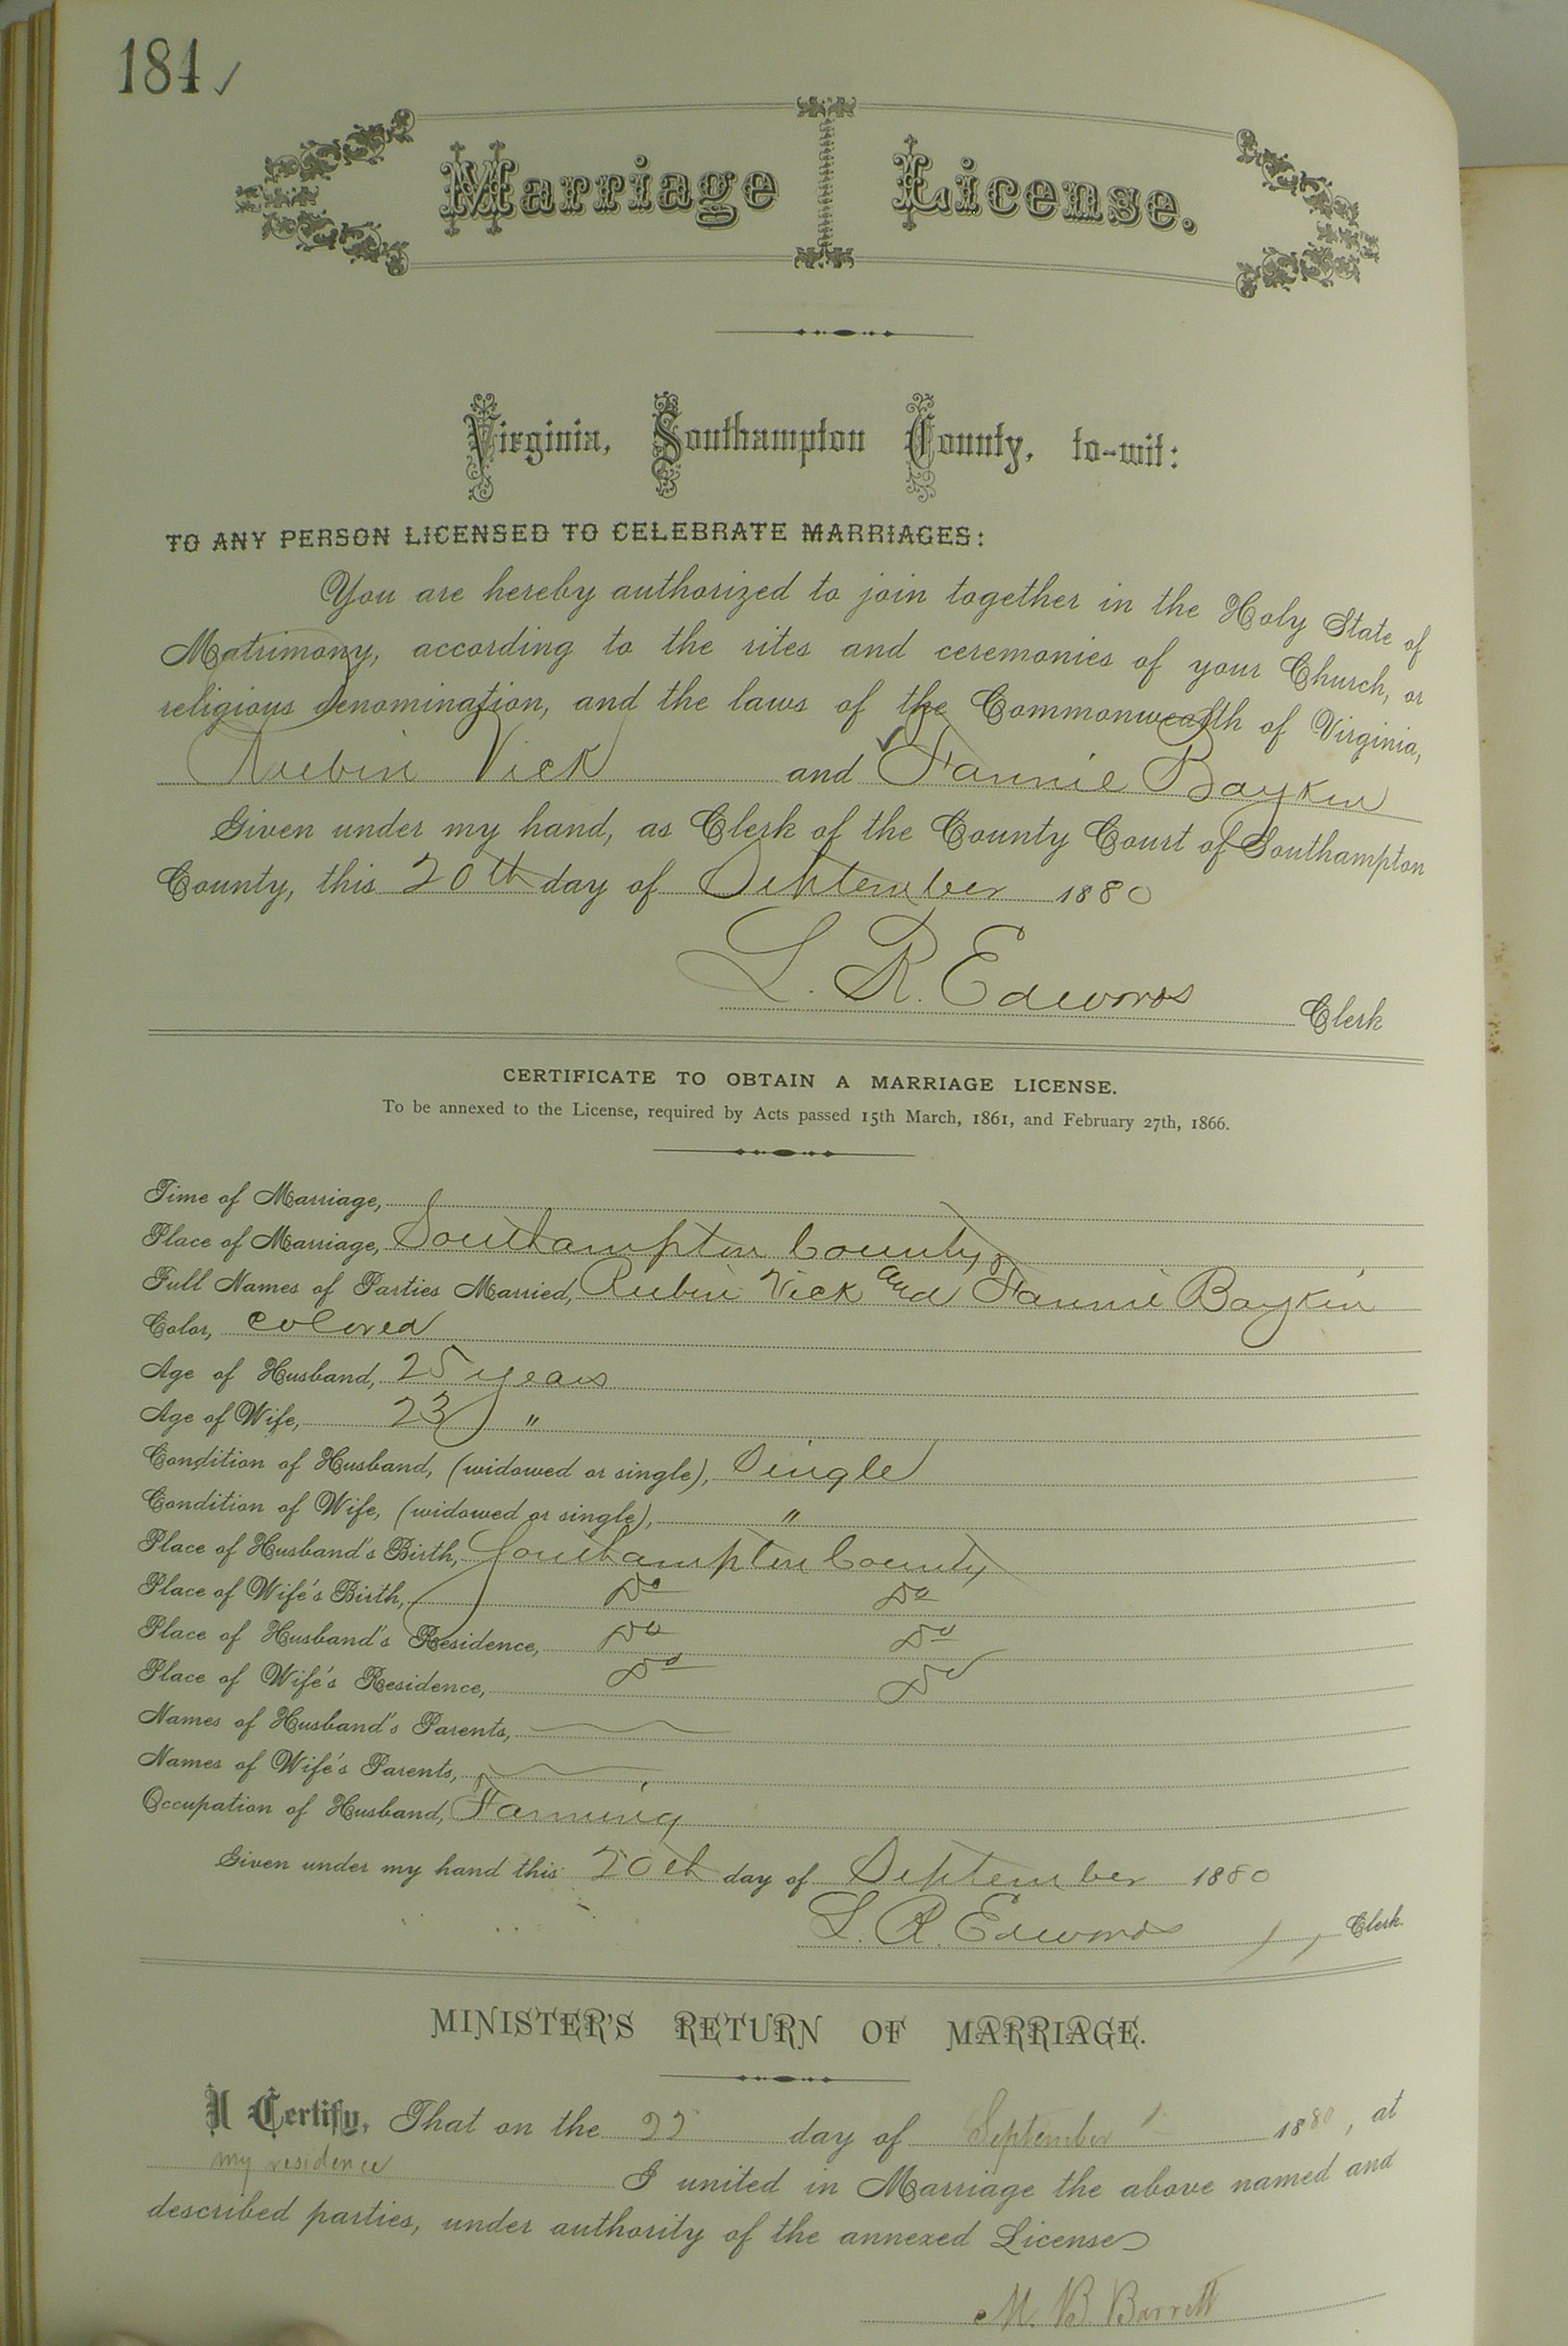 184 ✓
Marriage License.
Virginia, Southampton County, to-wit:
TO ANY PERSON LICENSED TO CELEBRATE MARRIAGES:
You are hereby authorized to join together in the Holy State of
Matrimony, according to the rites and ceremonies of your Church, or
religious denomination, and the laws of the Commonwealth of Virginia,
Rubin Vick and ✓ Fannie Baykin
Given under my hand, as Clerk of the County Court of Southampton
County, this 20th day of September 1880
L. R. Edwards Clerk
CERTIFICATE TO OBTAIN A MARRIAGE LICENSE.
To be annexed to the License, required by Acts passed 15th March, 1861, and February 27th, 1866.
Time of Marriage,
Place of Marriage, Southampton County
Full Names of Parties Married, Rubin Vick and Fannie Baykin
Color, colored
Age of Husband, 25 years
Age of Wife, 23 "
Condition of Husband, (widowed or single), Single
Condition of Wife, (widowed or single), "
Place of Husband's Birth, Southampton County
Place of Wife's Birth, Do Do
Place of Husband's Residence, Do Do
Place of Wife's Residence, Do Do
Names of Husband's Parents,
Names of Wife's Parents,
Occupation of Husband, Farming
Given under my hand this 20th day of September 1880
L. R. Edwards, Clerk.
MINISTER'S RETURN OF MARRIAGE.
I Certify, That on the 22 day of September 1880, at
my residence I united in Marriage the above named and
described parties, under authority of the annexed License
M. B. Barrett